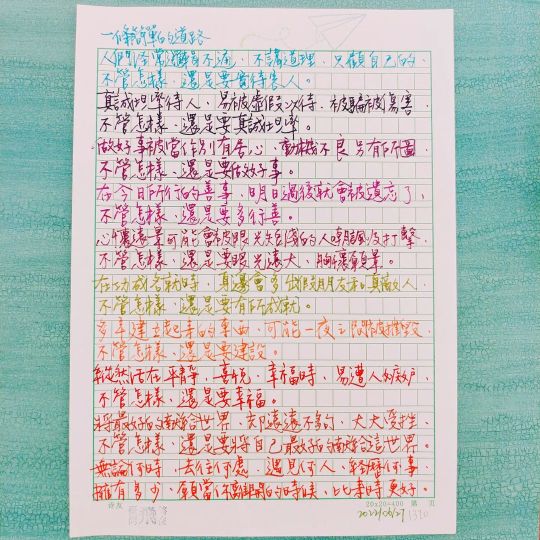 一條簡單的道路
人們經常邏輯不通，不講道理，只顧自己的，
不管怎樣，還是要善待害人。
真誠坦率待人，易被虛假以待，被騙被傷害，
不管怎樣，還是要真誠坦率。
做好事被當作別有居心，動機不良另有所圖，
不管怎樣，還是要做好事。
在今日所行的善事，明日過後就會被遺忘了，
不管怎樣，還是要多行善。
心懷遠景可能會被眼光短淺的人嘲諷及打擊，
不管怎樣，還是要眼光遠大，胸懷願景。
在功成名就時，身邊會多出假朋友和真敵人，
不管怎樣，還是要有所成就。
多年建立起來的東西，可能一夜之間被摧毀，
不管怎樣，還是要建設。
縱然活在平靜，喜悅，幸福時，易遭人嫉妒，
不管怎樣，還是要幸福。
將最好的給世界，却遠遠不夠，大大
不管怎樣，還是要將自己最好的給這世界。
無論何時，去往何處，遇見何人，經歷何事，
擁有多少，願當你離開的時候，比來時更好。
诗友
20×20=400 第 頁
2022/06/27 1310